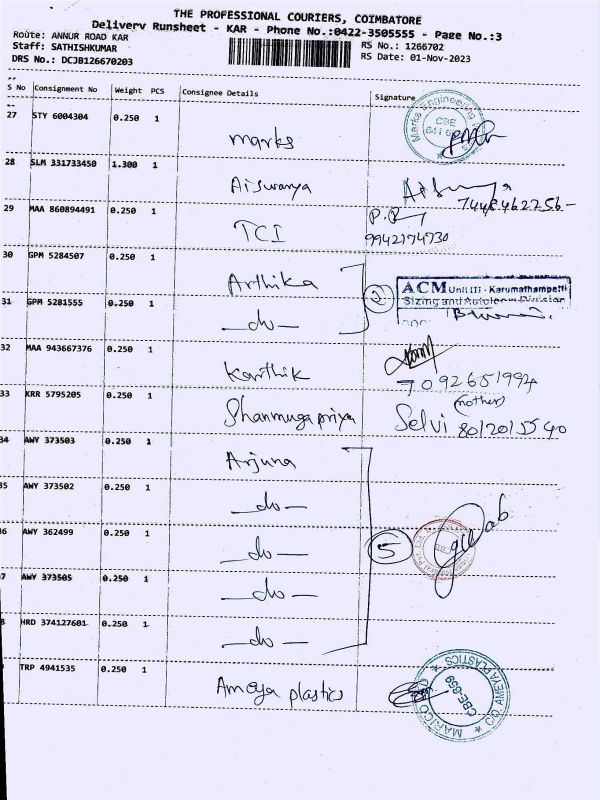 THE PROFESSIONAL COURIERS, COIMBATORE
Delivery Runsheet - KAR - Phone No.:0422-3505555 - Page No.:3
Route: ANNUR ROAD KAR
RS No.: 1266702
Staff: SATHISHKUMAR
RS Date: 01-Nov-2023
DRS No.: DCJB126670203
S No Consignment No Weight PCS Consignee Details Signature
27 STY 6004304 0.250 1
marks
Marks Engineering
CBE
28 SLM 331733450 1.300 1
Aiswarya
7448462256-
29 MAA 860894491 0.250 1
TCI
P.P
9942174730
30 GPM 5284507 0.250 1
Arthika
2
ACM Unit III - Karumathampatti
Sizing and Autoloom Division
31 GPM 5281555 0.250 1
-do-
32 MAA 943667376 0.250 1
Karthik
7092651994
33 KRR 5795205 0.250 1
Shanmugapriya
Selvi (mother)
8012015540
34 AWY 373503 0.250 1
Arjuna
35 AWY 373502 0.250 1
-do-
5
36 AWY 362499 0.250 1
-do-
37 AWY 373505 0.250 1
-do-
38 HRD 374127601 0.250 1
-do-
TRP 4941535 0.250 1
Ameya plastics
MARICO
CO. AMEYA PLASTICS
CBE-659